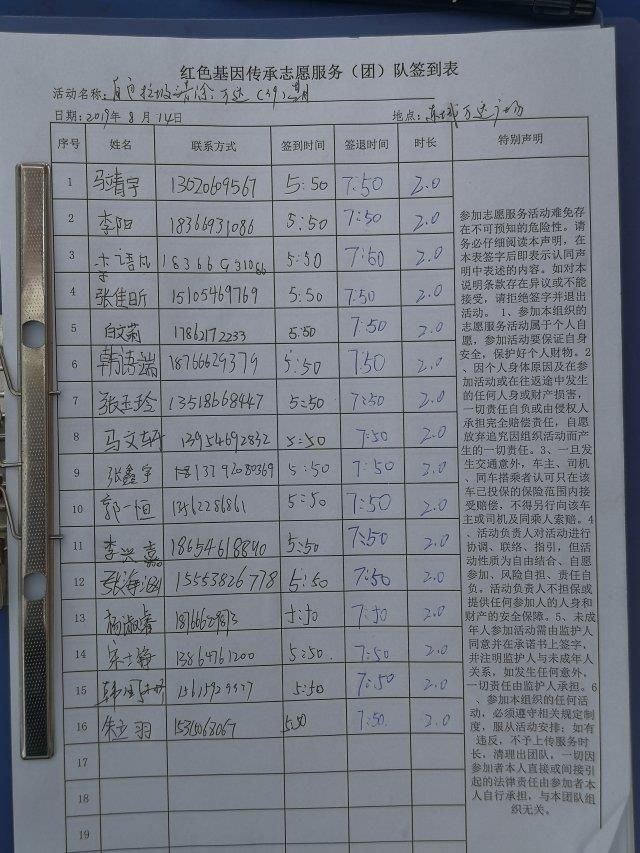 红色基因传承志愿服务（团）队签到表
活动名称：
日期：2019年8月14日 地点：东城万达广场
序号 姓名 联系方式 签到时间 签退时间 时长 特别声明
1 马靖宇 13020609567 5:50 7:50 2.0
2 李阳 18366931086 5:50 7:50 2.0
3 5:50 7:50 2.0
4 张佳昕 15105469769 5:50 7:50 2.0
5 17862172233 5:50 7:50 2.0
6 韩语端 18766629379 5:50 7:50 2.0
7 张玉玲 13518668447 5:50 7:50 2.0
8 马文轩 13954692832 5:50 7:50 2.0
9 张鑫宇 5:50 7:50 3.0
10 郭一恒 5:50 7:50 2.0
11 李兴嘉 18654618840 5:50 7:50 2.0
12 15553826778 5:50 7:50 2.0
13 杨淑睿 5:50 7:50 2.0
14 13864761200 5:50 7:50 2.0
15 5:50 7:50 2.0
16 朱立羽 5:50 7:50 2.0
17
18
19
参加志愿服务活动难免存
在不可预知的危险性。请
务必仔细阅读本声明，在
本表签字后即表示认同声
明中表述的内容。如对本
说明条款存在异议或不能
接受，请拒绝签字并退出
活动。 1、参加本组织的
志愿服务活动属于个人自
愿，参加活动要保证自身
安全，保护好个人财物。2
、因个人身体原因及在参
加活动或在往返途中发生
的任何人身或财产损害，
一切责任自负或由侵权人
承担完全赔偿责任，自愿
放弃追究因组织活动而产
生的一切责任。3、一旦
发生交通意外，车主、司机
、同车搭乘者认可只在该
车已投保的保险范围内接
受赔偿，不得另行向该车
主或司机及同乘人索赔。4
、活动负责人对活动进行
协调、联络、指引，但活
动性质为自由结合、自愿
参加、风险自担、责任自
负。活动负责人不担保或
提供任何参加人的人身和
财产的安全保障。5、未成
年人参加活动需由监护人
同意并在承诺书上签字，
并注明监护人与未成年人
关系，如发生任何意外，
一切责任由监护人承担。6
、参加本组织的任何活
动，必须遵守相关规定制
度，服从活动安排；如有
违反，不予上传服务时
长，清理出团队。一切因
参加者本人直接或间接引
起的法律责任由参加者本
人自行承担，与本团队组
织无关。